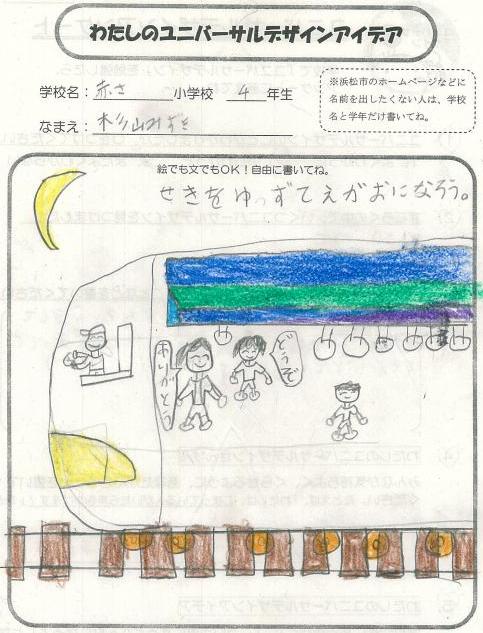 わたしのユニバーサルデザインアイデア
学校名:赤さ小学校 4年生
※浜松市のホームページなどに
名前を出したくない人は、学校
名と学年だけ書いてね。
なまえ:杉山みずき
絵でも文でもOK!自由に書いてね。
せきをゆっずてえがおになろう。
ありがとう
どうぞ